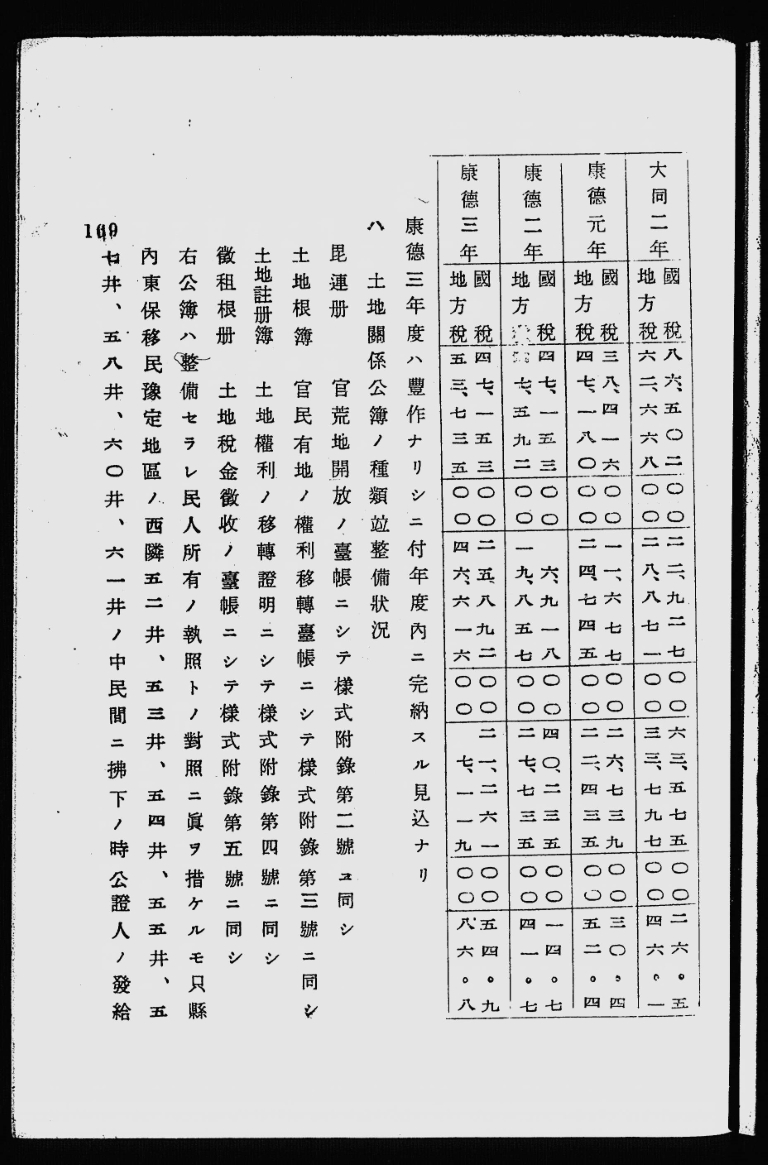 大同二年
國稅 八六、五〇二 〇〇 二二、九二七 〇〇 六三、五七五 〇〇 二六。五
地方稅 六二、六六八 〇〇 二八、八七一 〇〇 三三、七九七 〇〇 四六。一
康德元年
國稅 三八、四一六 〇〇 一一、六七七 〇〇 二六、七三九 〇〇 三〇。四
地方稅 四七、一八〇 〇〇 二四、七四五 〇〇 二二、四三五 〇〇 五二。四
康德二年
國稅 四七、一五三 〇〇 六、九一八 〇〇 四〇、二三五 〇〇 一四。七
地方 七、五九二 〇〇 一九、八五七 〇〇 二七、七三五 〇〇 四一。七
康德三年
國稅 四七、一五三 〇〇 二五、八九二 〇〇 二一、二六一 〇〇 五四。九
地方稅 五三、七三五 〇〇 四六、六一六 〇〇 七、一一九 〇〇 八六。八
康德三年度ハ豐作ナリシニ付年度內ニ完納スル見込ナリ
ハ 土地關係公簿ノ種類竝整備狀況
毘連册 官荒地開放ノ臺帳ニシテ樣式附錄第二號ニ同シ
土地根簿 官民有地ノ權利移轉臺帳ニシテ樣式附錄第三號ニ同シ
土地註册簿 土地權利ノ移轉證明ニシテ樣式附錄第四號ニ同シ
徵租根册 土地稅金徵收ノ臺帳ニシテ樣式附錄第五號ニ同シ
右公簿ハ整備セラレ民人所有ノ執照トノ對照ニ眞ヲ措ケルモ只縣
內東保移民豫定地區ノ西隣五二井、五三井、五四井、五五井、五
七井、五八井、六〇井、六一井ノ中民間ニ拂下ノ時公證人ノ發給
169